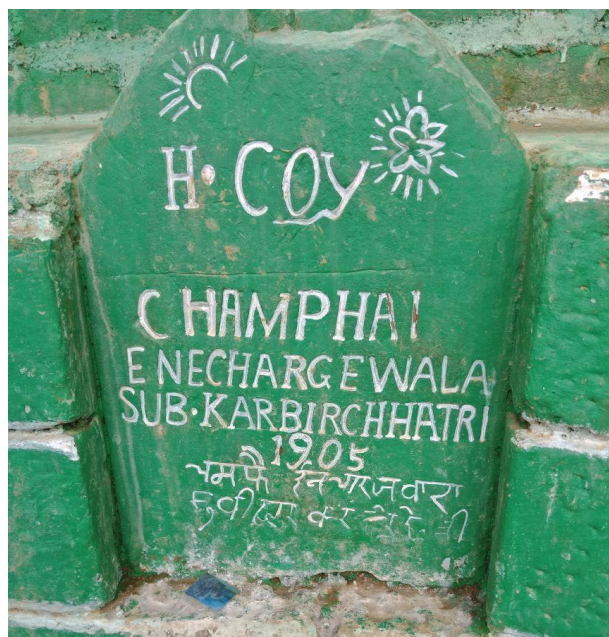 H. COY
CHAMPHAI
ENECHARGEWALA
SUB. KARBIRCHHATRI
1905
चमफै ईनचारजवारा